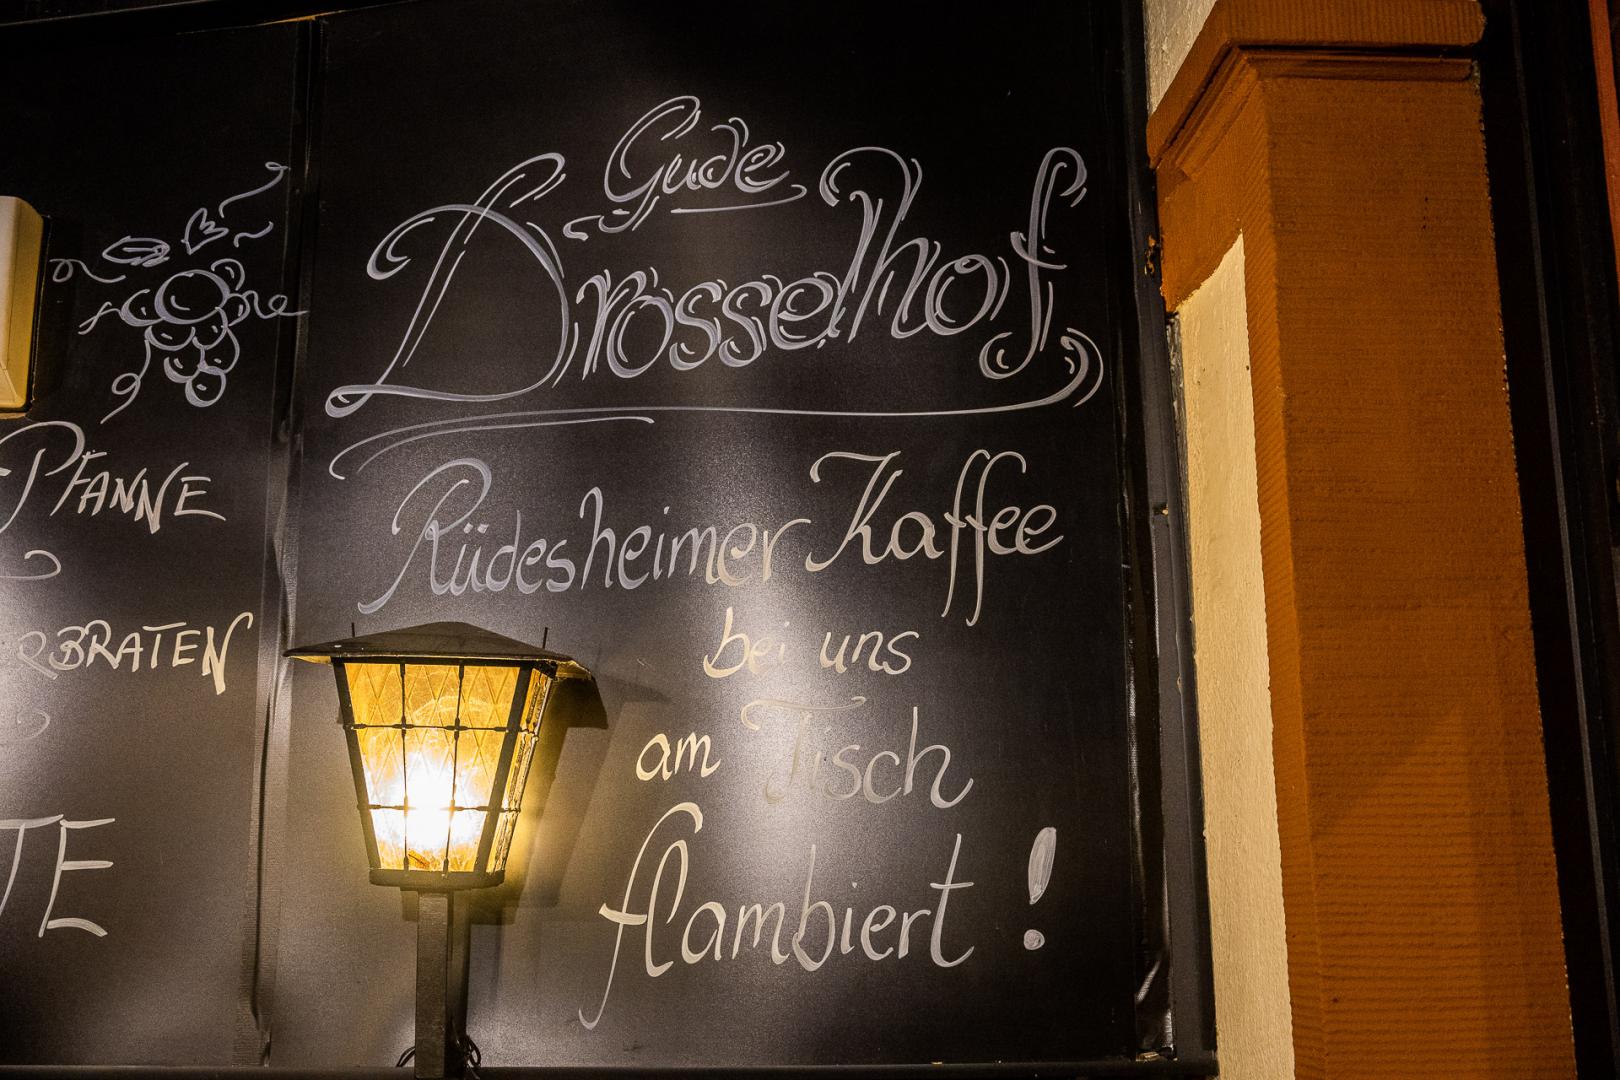 PFANNE
BRATEN
TE
Gude
Drosselhof
Rüdesheimer Kaffee
bei uns
am Tisch
flambiert!